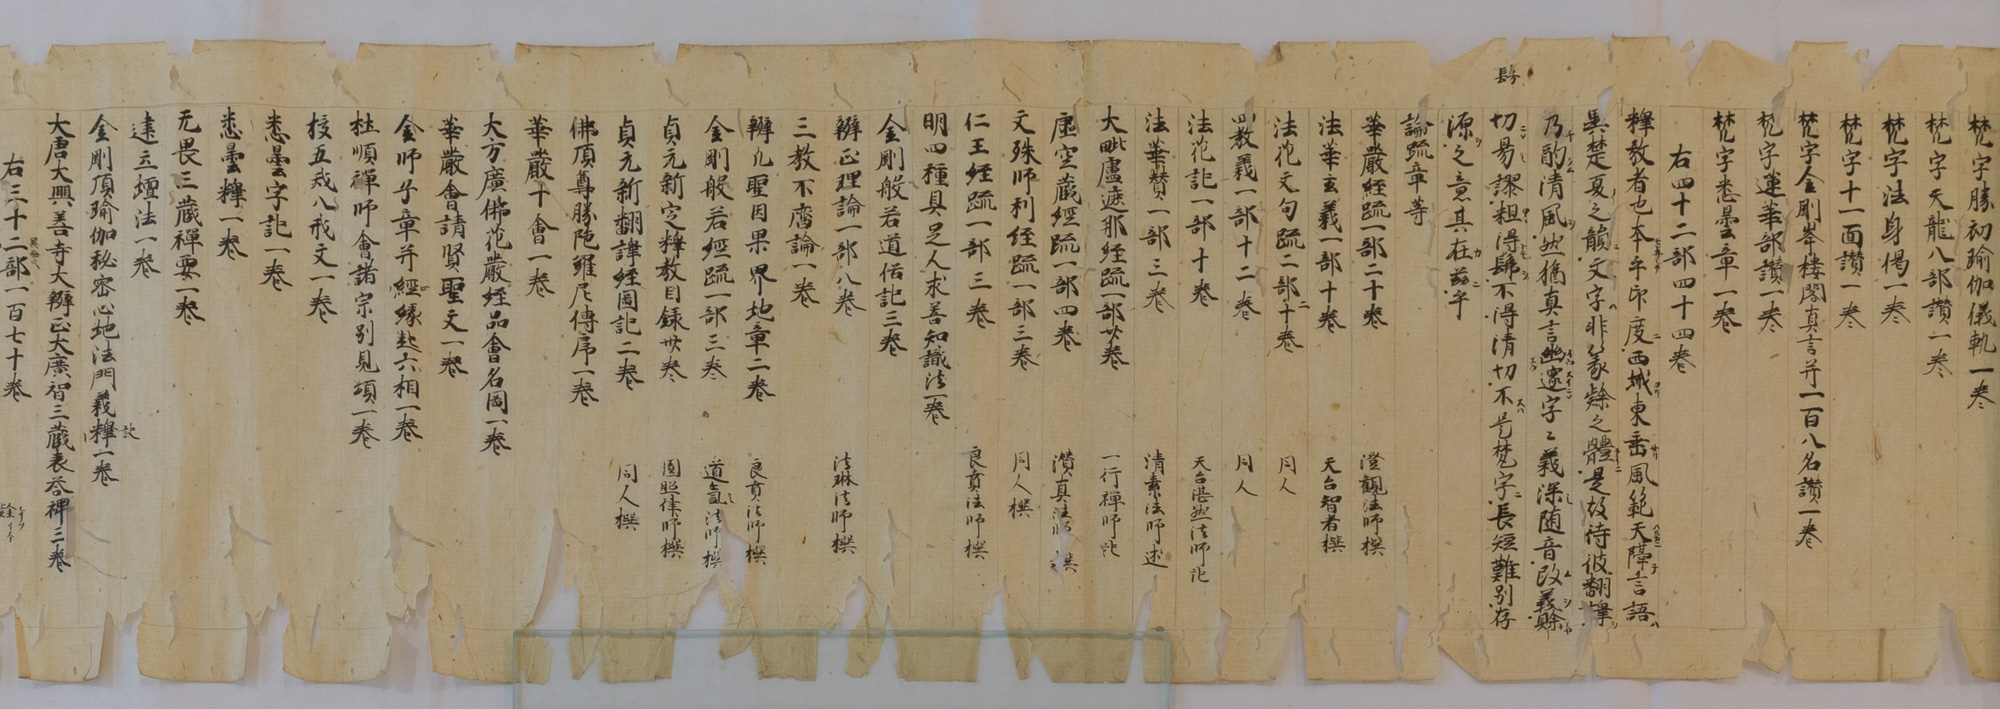 梵字勝初瑜伽儀軌一巻
梵字天龍八部讃一巻
梵字法身偈一巻
梵字十一面讃一巻
梵字金剛峯樓閣真言并一百八名讃一巻
梵字蓮華部讃一巻
梵字悉曇章一巻
右四十二部四十四巻
釋教者也本乎印度西域東垂風範天隔言語
異楚夏之韻文字非篆隸之體是故待彼翻譯
乃酌清風然猶真言幽邃字々義深随音改義賖
切易謬粗得髣不得清切不是梵字長短難別存
源之意其在茲乎
論疏章等
華嚴経疏一部二十巻 澄觀法師撰
法華玄義一部十巻 天台智者撰
法花文句疏二部十巻 同人
四教義一部十二巻 同人
法花記一部十巻 天台湛然法師記
法華賛一部三巻 清素法師述
大毗盧遮那経疏一部廿巻 一行禅師記
虚空蔵経疏一部四巻 潛真法師撰
文殊師利経疏一部三巻 同人撰
仁王経疏一部三巻 良賁法師撰
明四種具足人求善知識法一巻
金剛般若道俗記三巻
辯正理論一部八巻 法琳法師撰
三教不齊論一巻
辯凡聖因果界地章二巻 良賁法師撰
金剛般若經疏一部三巻 道氤法師撰
貞元新定釋教目録卅巻 圓照律師撰
貞元新翻譯経圖記二巻 同人撰
佛頂尊勝陀羅尼傳序一巻
華嚴十會一巻
大方廣佛花嚴経品會名圖一巻
華嚴會請賢聖文一巻
金師子章并經緣起六相一巻
杜順禪師會諸宗別見頌一巻
授五戒八戒文一巻
悉曇字記一巻
悉曇釋一巻
无畏三蔵禪要一巻
建立壇法一巻
金剛頂瑜伽秘密心地法門義釋一巻
大唐大興善寺大辯正大廣智三蔵表答碑三巻
右三十二部一百七十巻